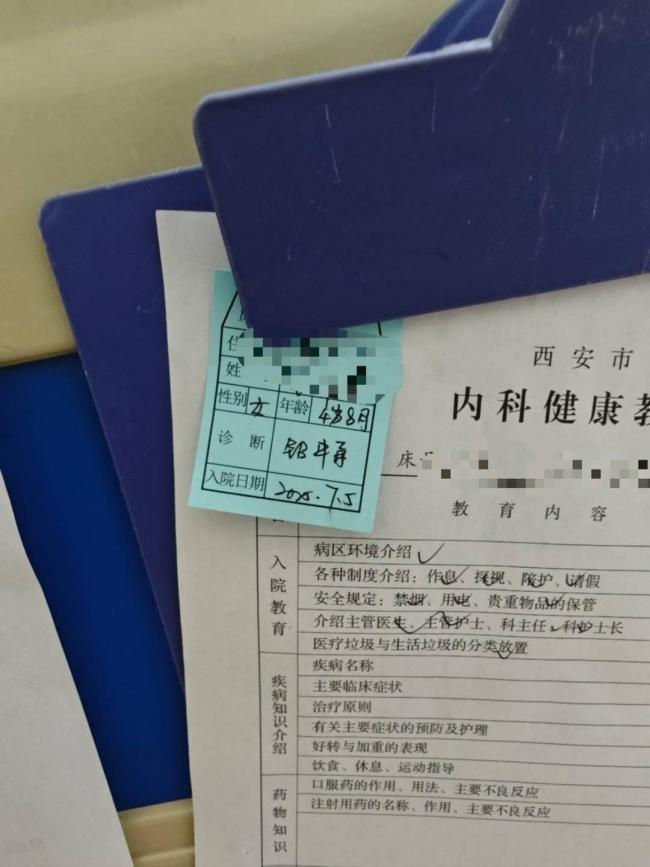 姓
性别 女 年龄 4岁8月
诊 断
入院日期 2025.7.5
西安市
内科健康教
床
教 育 内 容
入院教育
病区环境介绍 ✓
各种制度介绍：作息、探视、陪护、请假
安全规定：禁烟、用电、贵重物品的保管
介绍主管医生、主管护士、科主任、科护士长
医疗垃圾与生活垃圾的分类放置
疾病知识介绍
疾病名称
主要临床症状
治疗原则
有关主要症状的预防及护理
好转与加重的表现
饮食、休息、运动指导
药物知识
口服药的作用、用法、主要不良反应
注射用药的名称、作用、主要不良反应